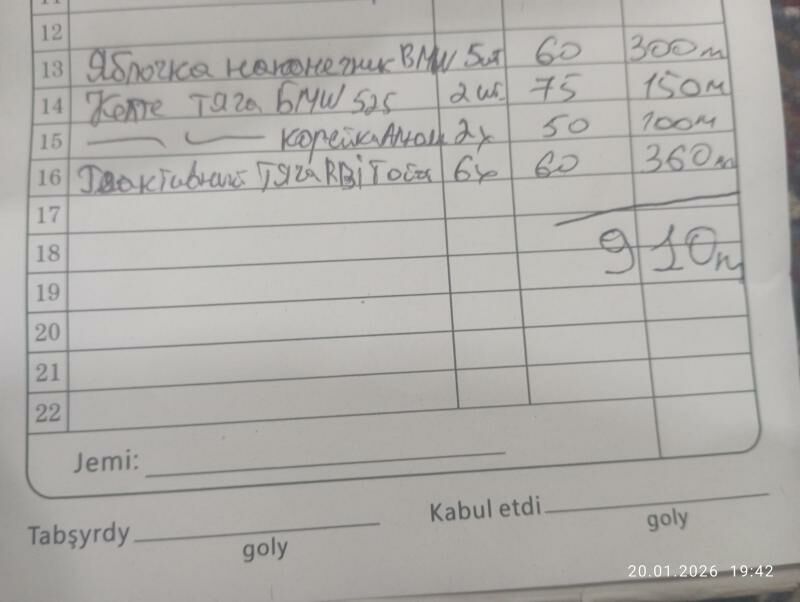 12
13 Яблочка наконечник BMW 5шт 60 300м
14 тяга БМW 525 2шт. 75 150м
15 — — корейка 2х 50 100м
16 тяга 6х 60 360м
17
910м
18
19
20
21
22
Jemi:
Tabşyrdy Kabul etdi
goly goly
20.01.2026 19:42